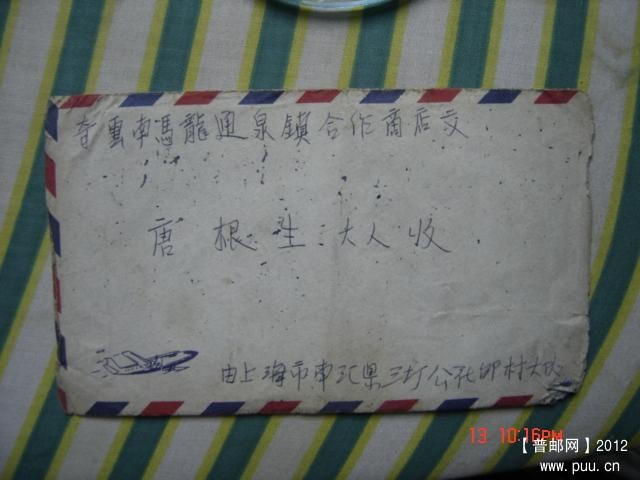 寄雲南馬龍通泉鎮合作商店交
唐根生大人收
由上海市南汇県三灶公社邱村大队
13 10:16PM
【普邮网】2012
www.puu.cn